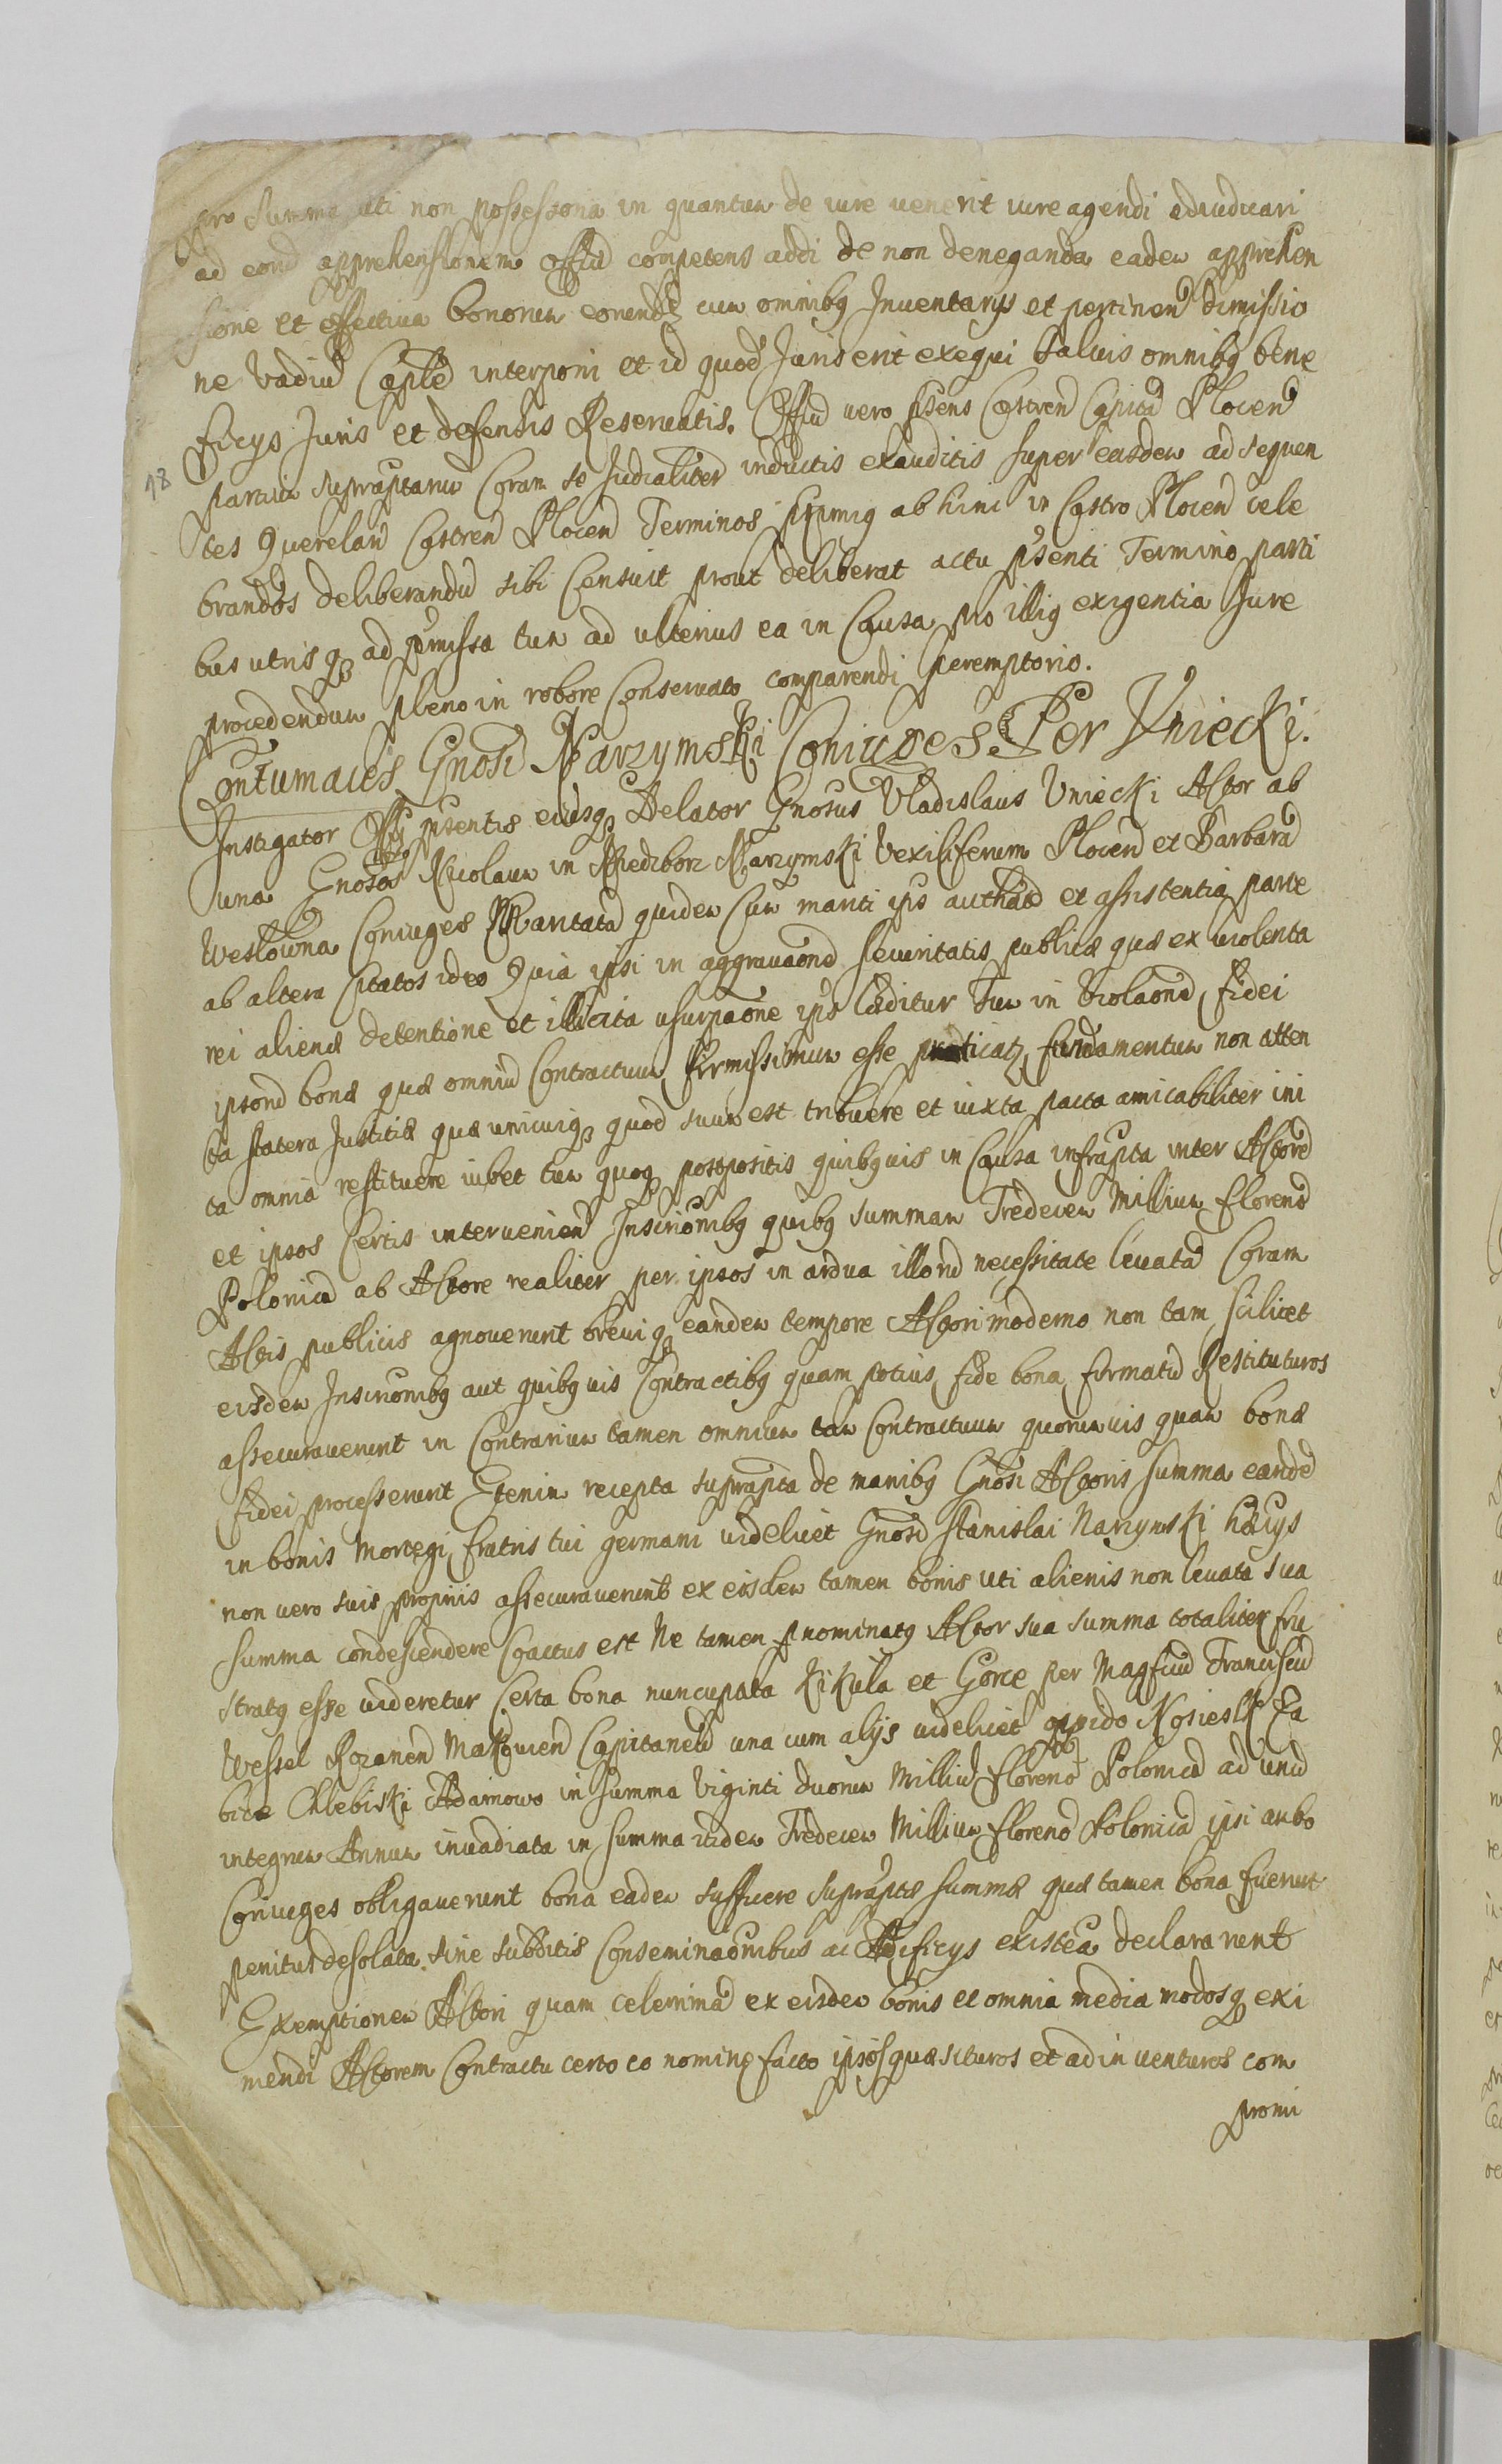 pro Summa uti non possessoria in quantum de iure venerit iure agendi adiudicari
ad eond apprehensionem Offid competens addi de non deneganda eadem apprehen
sione et effectiva bonorum eorundz cum omnibq Inventarys et pertinend dimissio
ne Vadiu interponi et id quod Juris erit exequi Salvis omnibq bene
ficys Juris et defensis Reservatis. Offid vero psens Castren Capitd Plocend
18
partium supraptarum Coram se Judicialiter inductis exauditis super easdem ad sequen
tes Querelard Castren Plocend Terminos primiq ab hinc in Castro Plocend cele
brandos deliberandu sibi Censuit prout deliberat actu psenti Termino parti
bus utrisq ad pmissa tum ad ulterius ea in Causa pro illiq exigentia Jure
procedendum pleno in robore Conservato comparendi peremptorio.
Contumacies Gnosd Narzymski Coniuges Per Uniecki.
Instigator Offy psentis eiusq Delator Gnosus Vladislaus Uniecki Actor ab
una Gnosos Nicolaum in Niedborz Narzymski Vexiliferum Plocend et Barbard
Weslowna Coniuges Maritatd quidem Cum mariti ips authatd et assistentia parte
ab altera Citatos ideo Quia ipsi in aggravaond severitatis publicæ quæ ex violenta
rei alienæ detentione et illicita usurpaone ips læditur Tum in Violaond fidei
ipsord bonæ quæ omniu Contractuum firmissimum esse fundamentum non atten
ta statera Justitiæ quæ unicuiq quod suum est tribuere et iuxta pacta amicabiliter ini
ta omnia restituere iubet tum quoq postpositis quibqvis in Causa infrapta inter Actord
et ipsos Certis intervenien Inscrionibq quibq summam Tredecem Millium florend
Polonicd ab Actore realiter per ipsos in ardua illord necessitate levatd Coram
Actis publicis agnoverunt breviq eandem tempore Actori moderno non tam scilicet
eisdem Inscrionibq aut quibqvis Contractibq quam potius fide bona firmatd Restituturos
assecuraverunt in Contrarium tamen omnium tam Contractuum quorumvis quam bonæ
fidei processerunt Etenim recepta suprapta de manibq Gnosi Actoris summa eandd
in bonis Mortęgi fratris tui germani videlicet Gnosd Stanislai Narzymski
non vero suis proprijs assecuraverunt ex eisdem tamen bonis uti alienis non levata sua
summa condescendere Coactus est Ne tamen pnominatq Actor sua summa totaliter fru
stratq esse videretur Certa bona nuncupata Kikula et Gorce per Magfiud Franciscud
Wessel Rozanend Makoviend Capitaneud una cum alijs videlicet oppido Nosielsk Ea
bice Chlebiski Adamowo in summa Viginti duorum Milliud florend Polonicd ad unud
integrum Annum invadiata in summa itidem Tredecem Millium florend Polonicd ipsi ambo
Coniuges obligaverunt bona eadem sufficere supraptæ summæ quæ tamen bona fuerunt
penitus desolata sine subditis Conseminaonibus ac Ædificys existed declararent
Exemptionem Actori quam celerrimd ex eisdem bonis et omnia media modosq exi
mendi Actorem Contractu certo eo nomine facto ipsos quæsituros et adinventuros com
promi